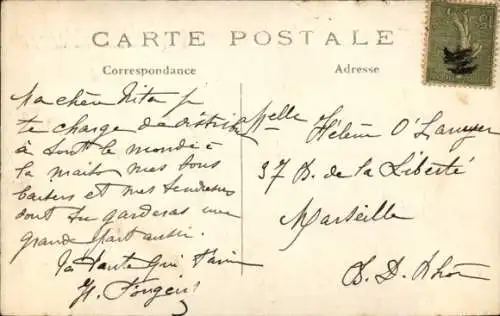 CARTE POSTALE
Correspondance
Adresse
Ma chère Nita je
te charge de distribuer
à tout le monde à
la maison mes bons
baisers et mes tendresses
dont tu garderas une
grande part aussi.
ta tante qui t'aime
H.
Melle Hélène
37 B. de la Liberté
Marseille
B. D. Rhône